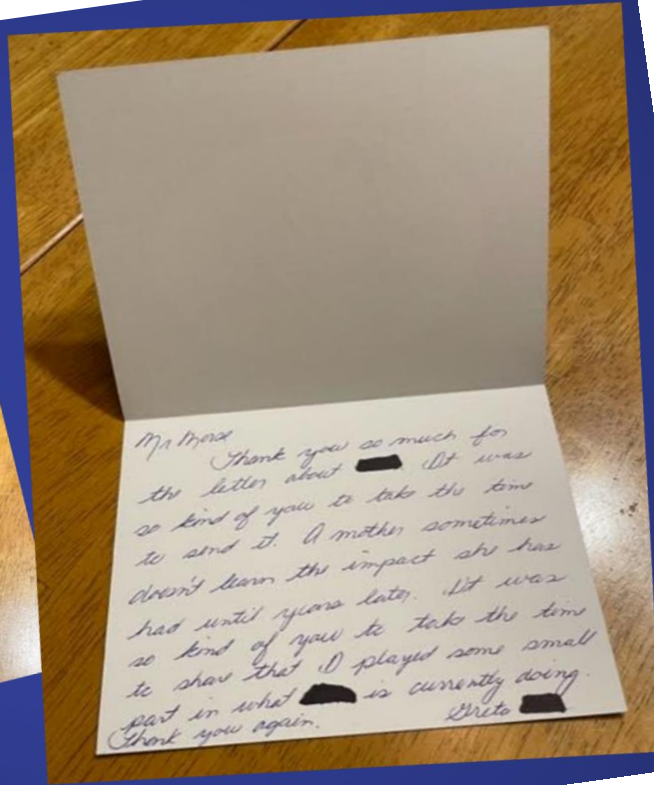 Mr Morse
Thank you so much for
the letter about It was
so kind of you to take the time
to send it. A mother sometimes
doesn't learn the impact she has
had until years later. It was
so kind of you to take the time
to share that I played some small
part in what is currently doing.
Thank you again. Greta